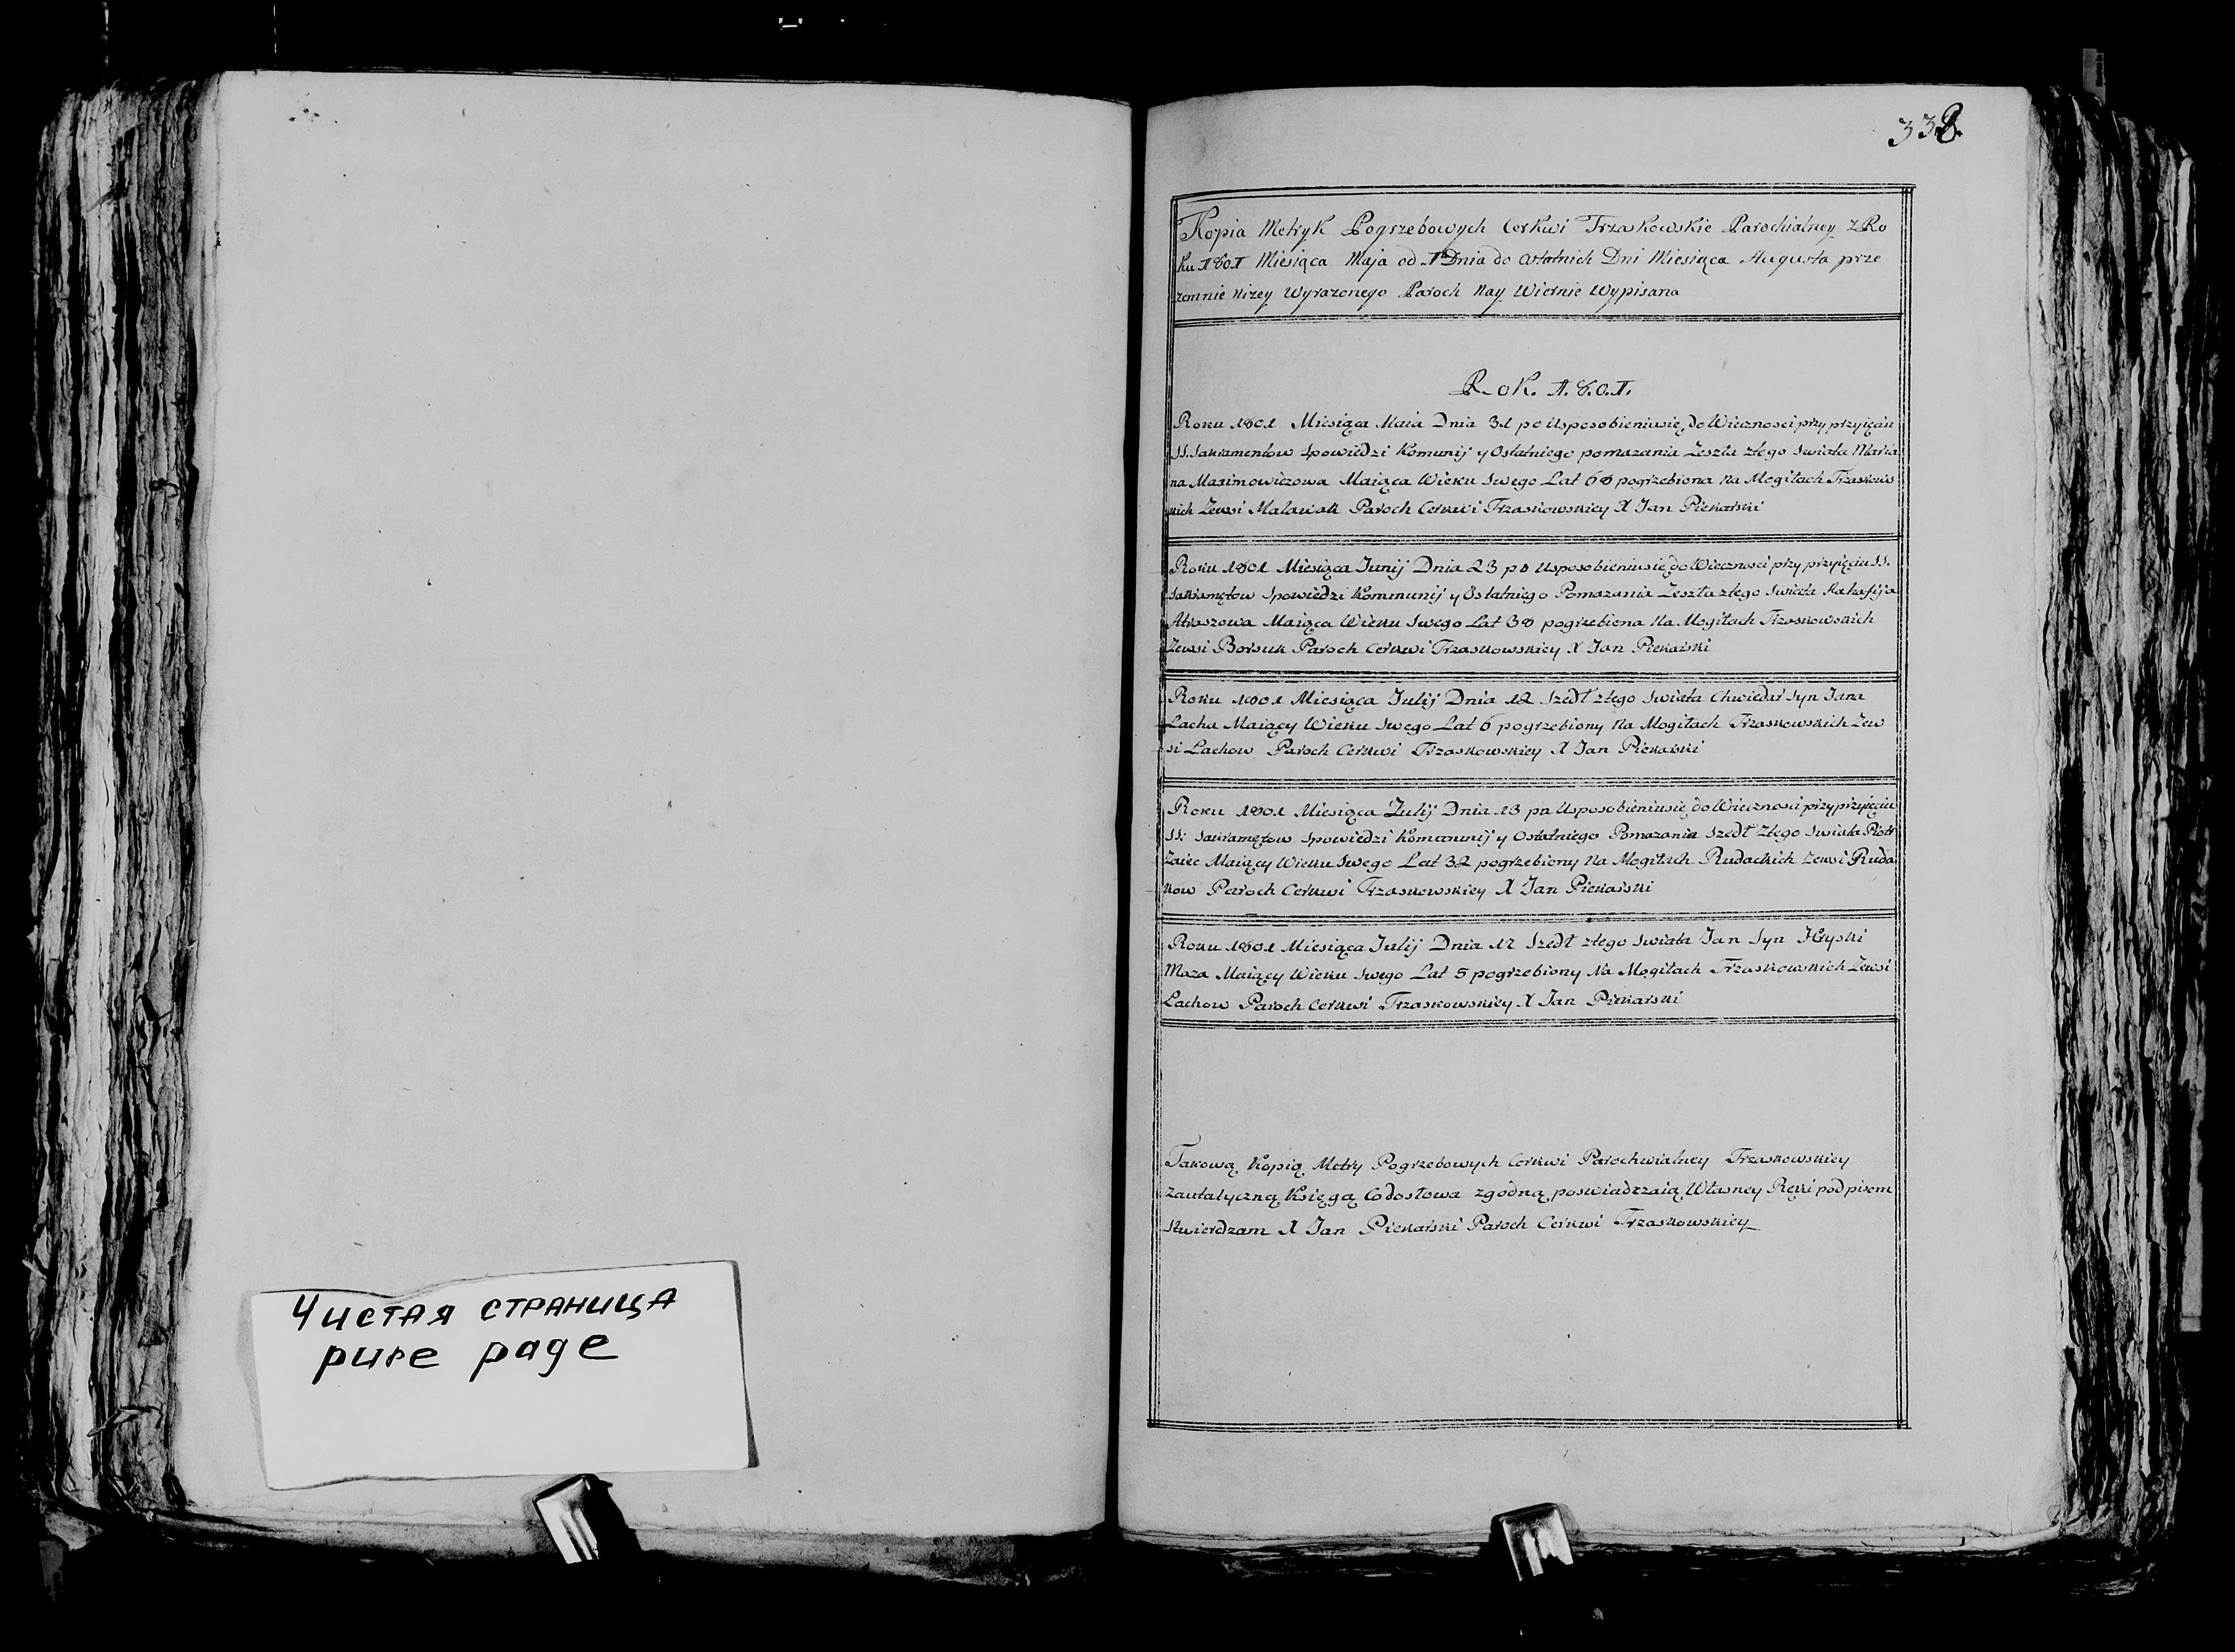 Чистая страница
pure page
338.
Kopia Metryk Pogrzebowych Cerkwi Trzaskowskie Parochialney z Ro
ku 1801 Miesiąca Maja od 1 Dnia do ostatnich Dni Miesiąca Augusta prze
zemnie niżey Wyrażonego Paroch Nay Wiernie Wypisana
Rok. 1.8.0.1.
Roku 1801 Miesiąca Maia Dnia 31 po Usposobieniusię do Wiecznosci przy przyięciu
SS. Sakramentow Spowiedzi Komunij y Ostatniego pomazania Zeszła ztego Swiata Maria
na Maximowiczowa Maiąca Wieku Swego Lat 68 pogrzebiona na Mogiłach Trzaskows
kich Zewsi Malawek Paroch Cerkwi Trzaskowskiey X Jan Piekarski
Roku 1801 Miesiąca Junij Dnia 23 po Usposobieniusię do Wiecznosci przy przyięciu SS.
Sakramętow Spowiedzi Kommunij y Ostatniego Pomazania Zeszła ztego Swiata Aahafija
Atraszowa Maiąca Wieku Swego Lat 38 pogrzebiona Na Mogiłach Trzaskowskich
Zewsi Borsuk Paroch Cerkwi Trzaskowskiey X Jan Piekarski
Roku 1801 Miesiąca Julij Dnia 12 Szedł ztego Swiata Chwiedar Syn Jana
Lacha Maiący Wieku Swego Lat 6 pogrzebiony Na Mogiłach Trzaskowskich Zew
si Lachow Paroch Cerkwi Trzaskowskiey X Jan Piekarski
Roku 1801 Miesiąca Julij Dnia 13 po Usposobieniusię do Wiecznosci przy przyięciu
SS: Sakramętow Spowiedzi Kommunij y Ostatniego Pomazania Szedł Ztego Swiata Piotr
Zaiec Maiący Wieku Swego Lat 32 pogrzebiony Na Mogiłach Rudackich Zewsi Ruda
kow Paroch Cerkwi Trzaskowskiey X Jan Piekarski
Roku 1801 Miesiąca Julij Dnia 17 Szedł ztego Swiata Jan Syn Hryski
Maza Maiący Wieku Swego Lat 5 pogrzebiony Na Mogiłach Trzaskowskich Zewsi
Lachow Paroch Cerkwi Trzaskowskiey X Jan Piekarski
Takową Kopią Metry Pogrzebowych Cerkwi Parochwialney Trzaskowskiey
Zautatyczną Księgą Codosłowa zgodną poswiadrzaią Własney Ręki podpisem
Stwierdzam X Jan Piekarski Paroch Cerkwi Trzaskowskiey